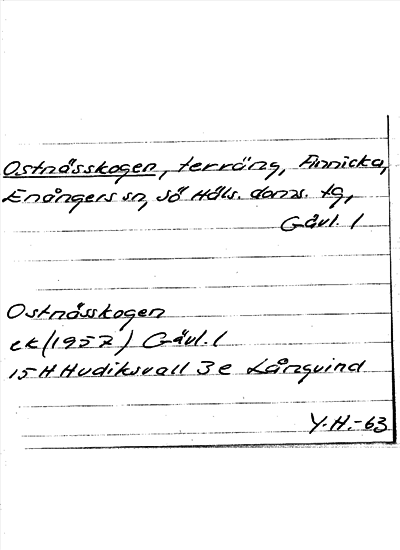 Ostnässkogen, terräng, Annicka,
Enångers sn, sö Häls. doms. tg,
Gävl. l
Ostnässkogen
ek (1957) Gävl. l
15 H Hudiksvall 3 e Långvind
Y.H.-63